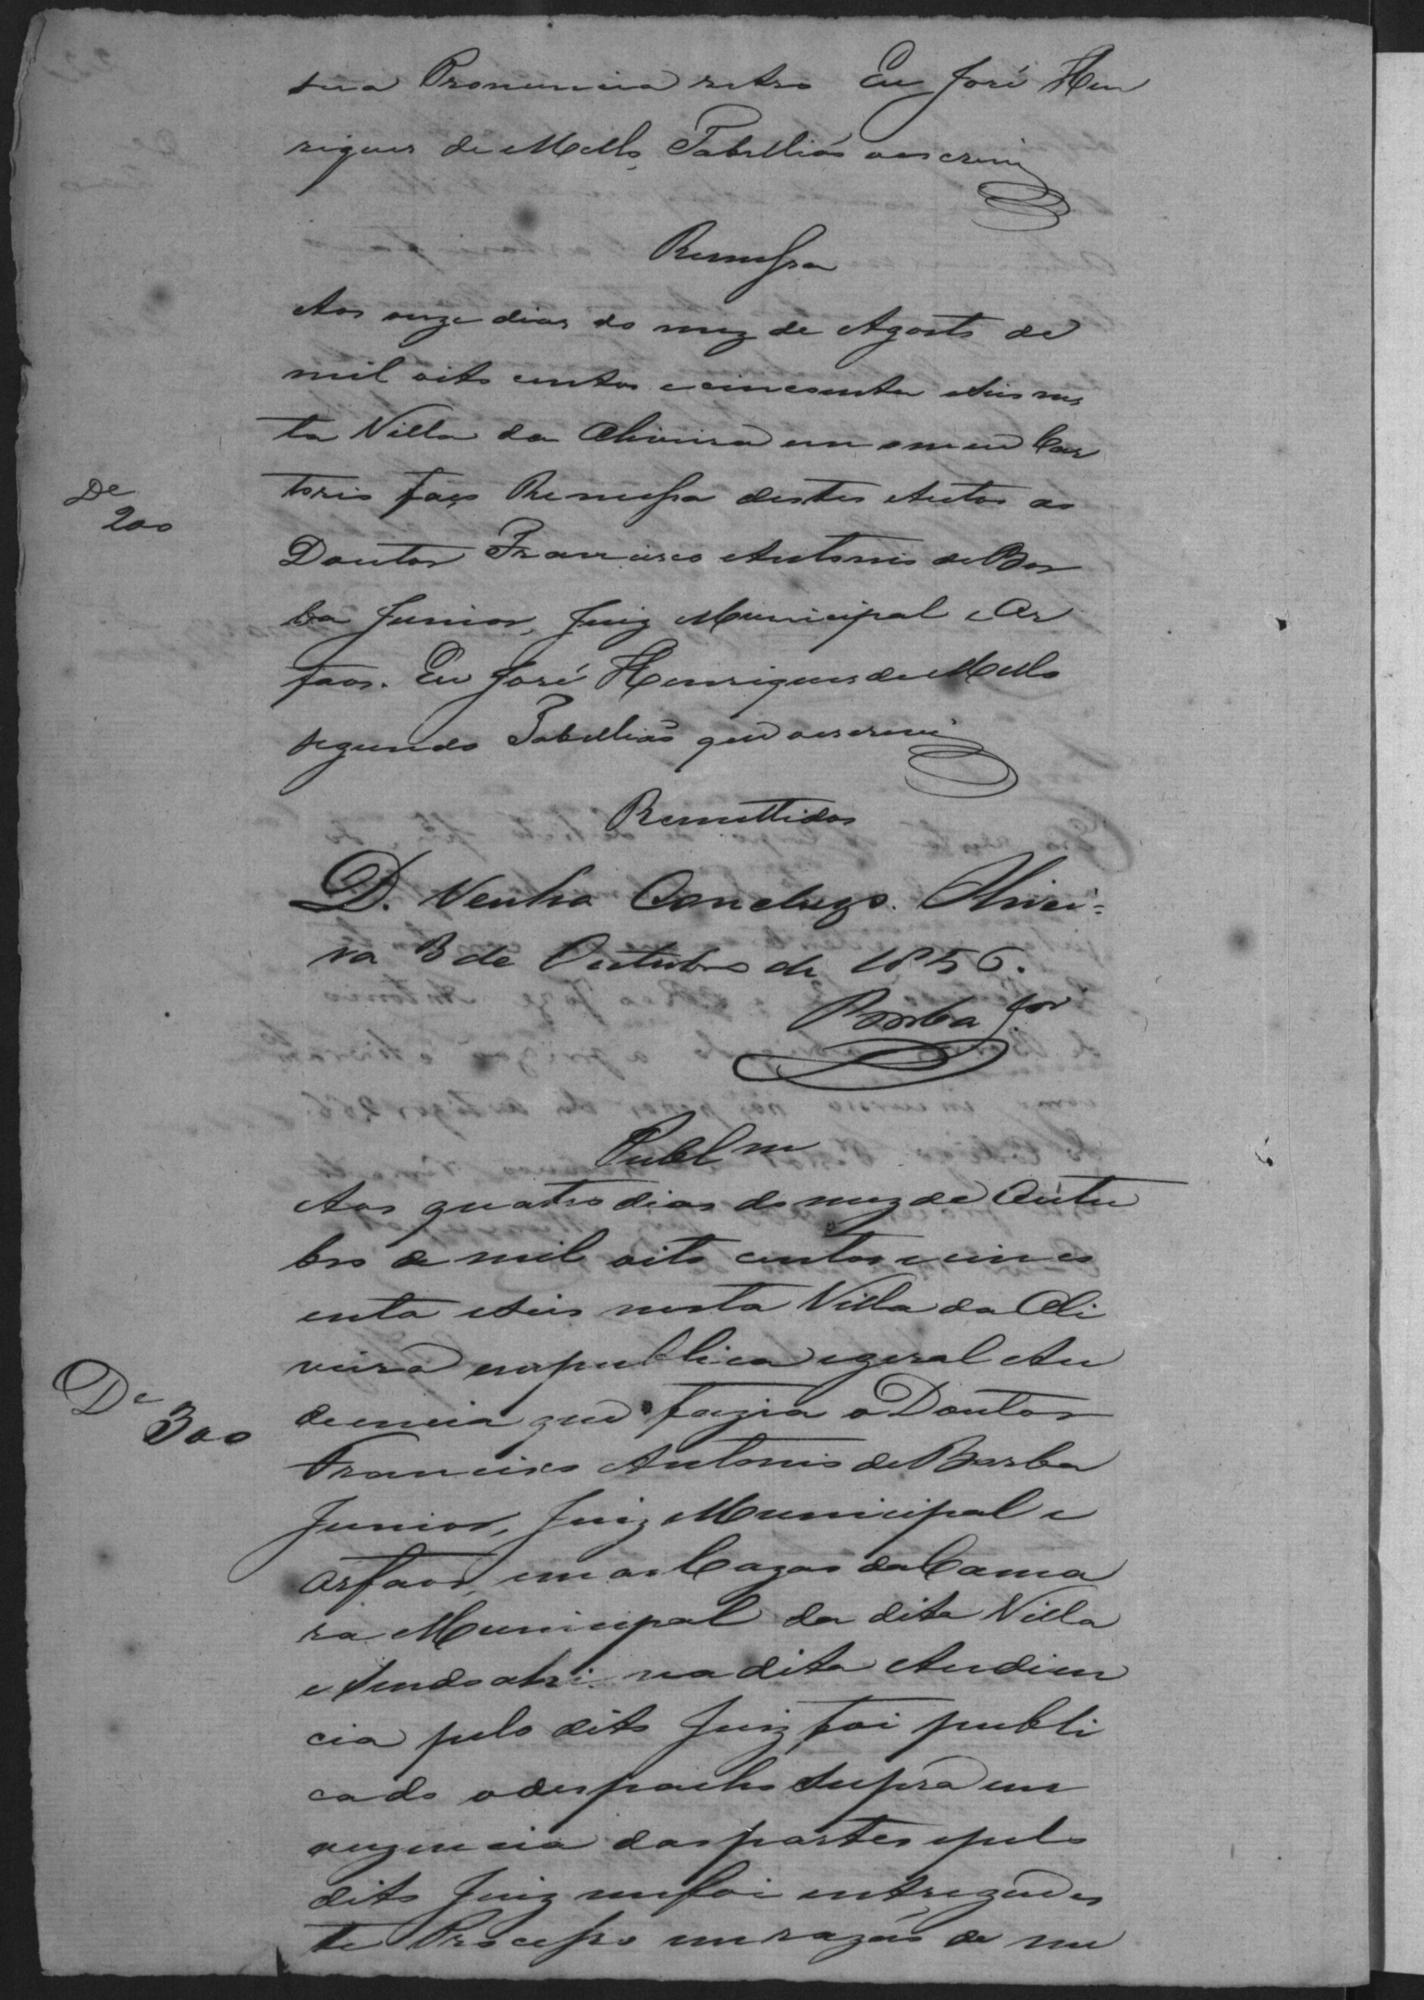 sua Pronuncia retro Eu José Hen
riques de Mello, Tabellião o escrevi
Remessa
Aos onze dias do mez de Agosto de
mil oito centos e cincoenta e seis nes
ta Villa da Oliveira em o meu Car
torio faço Remessa destes Autos ao
De
200
Doutor Francisco Antonio de Bor
ba Junior, Juiz Municipal e Or
faos. Eu José Henriques de Mello
segundo Tabellião que o escrevi
Remettidos
D. Venha Concluzo. Olivei=
ra 3 de Outubro de 1856.
Borba Jor
Publm
Aos quatro dias do mez de Outu
bro de mil oito centos e cinco
enta e seis nesta Villa da Oli
veira em publica e geral Au
De
300
dencia que fazia o Doutor
Francisco Antonio de Borba
Junior, Juiz Municipal e
Orfaos, em as Cazas da Cama
ra Municipal da dita Villa
e sendo ahi na dita Audien
cia pelo dito Juiz foi publi
cado o despacho supra em
auzencia das partes e pelo
dito Juiz me foi entregue es
te Processo em razão de me